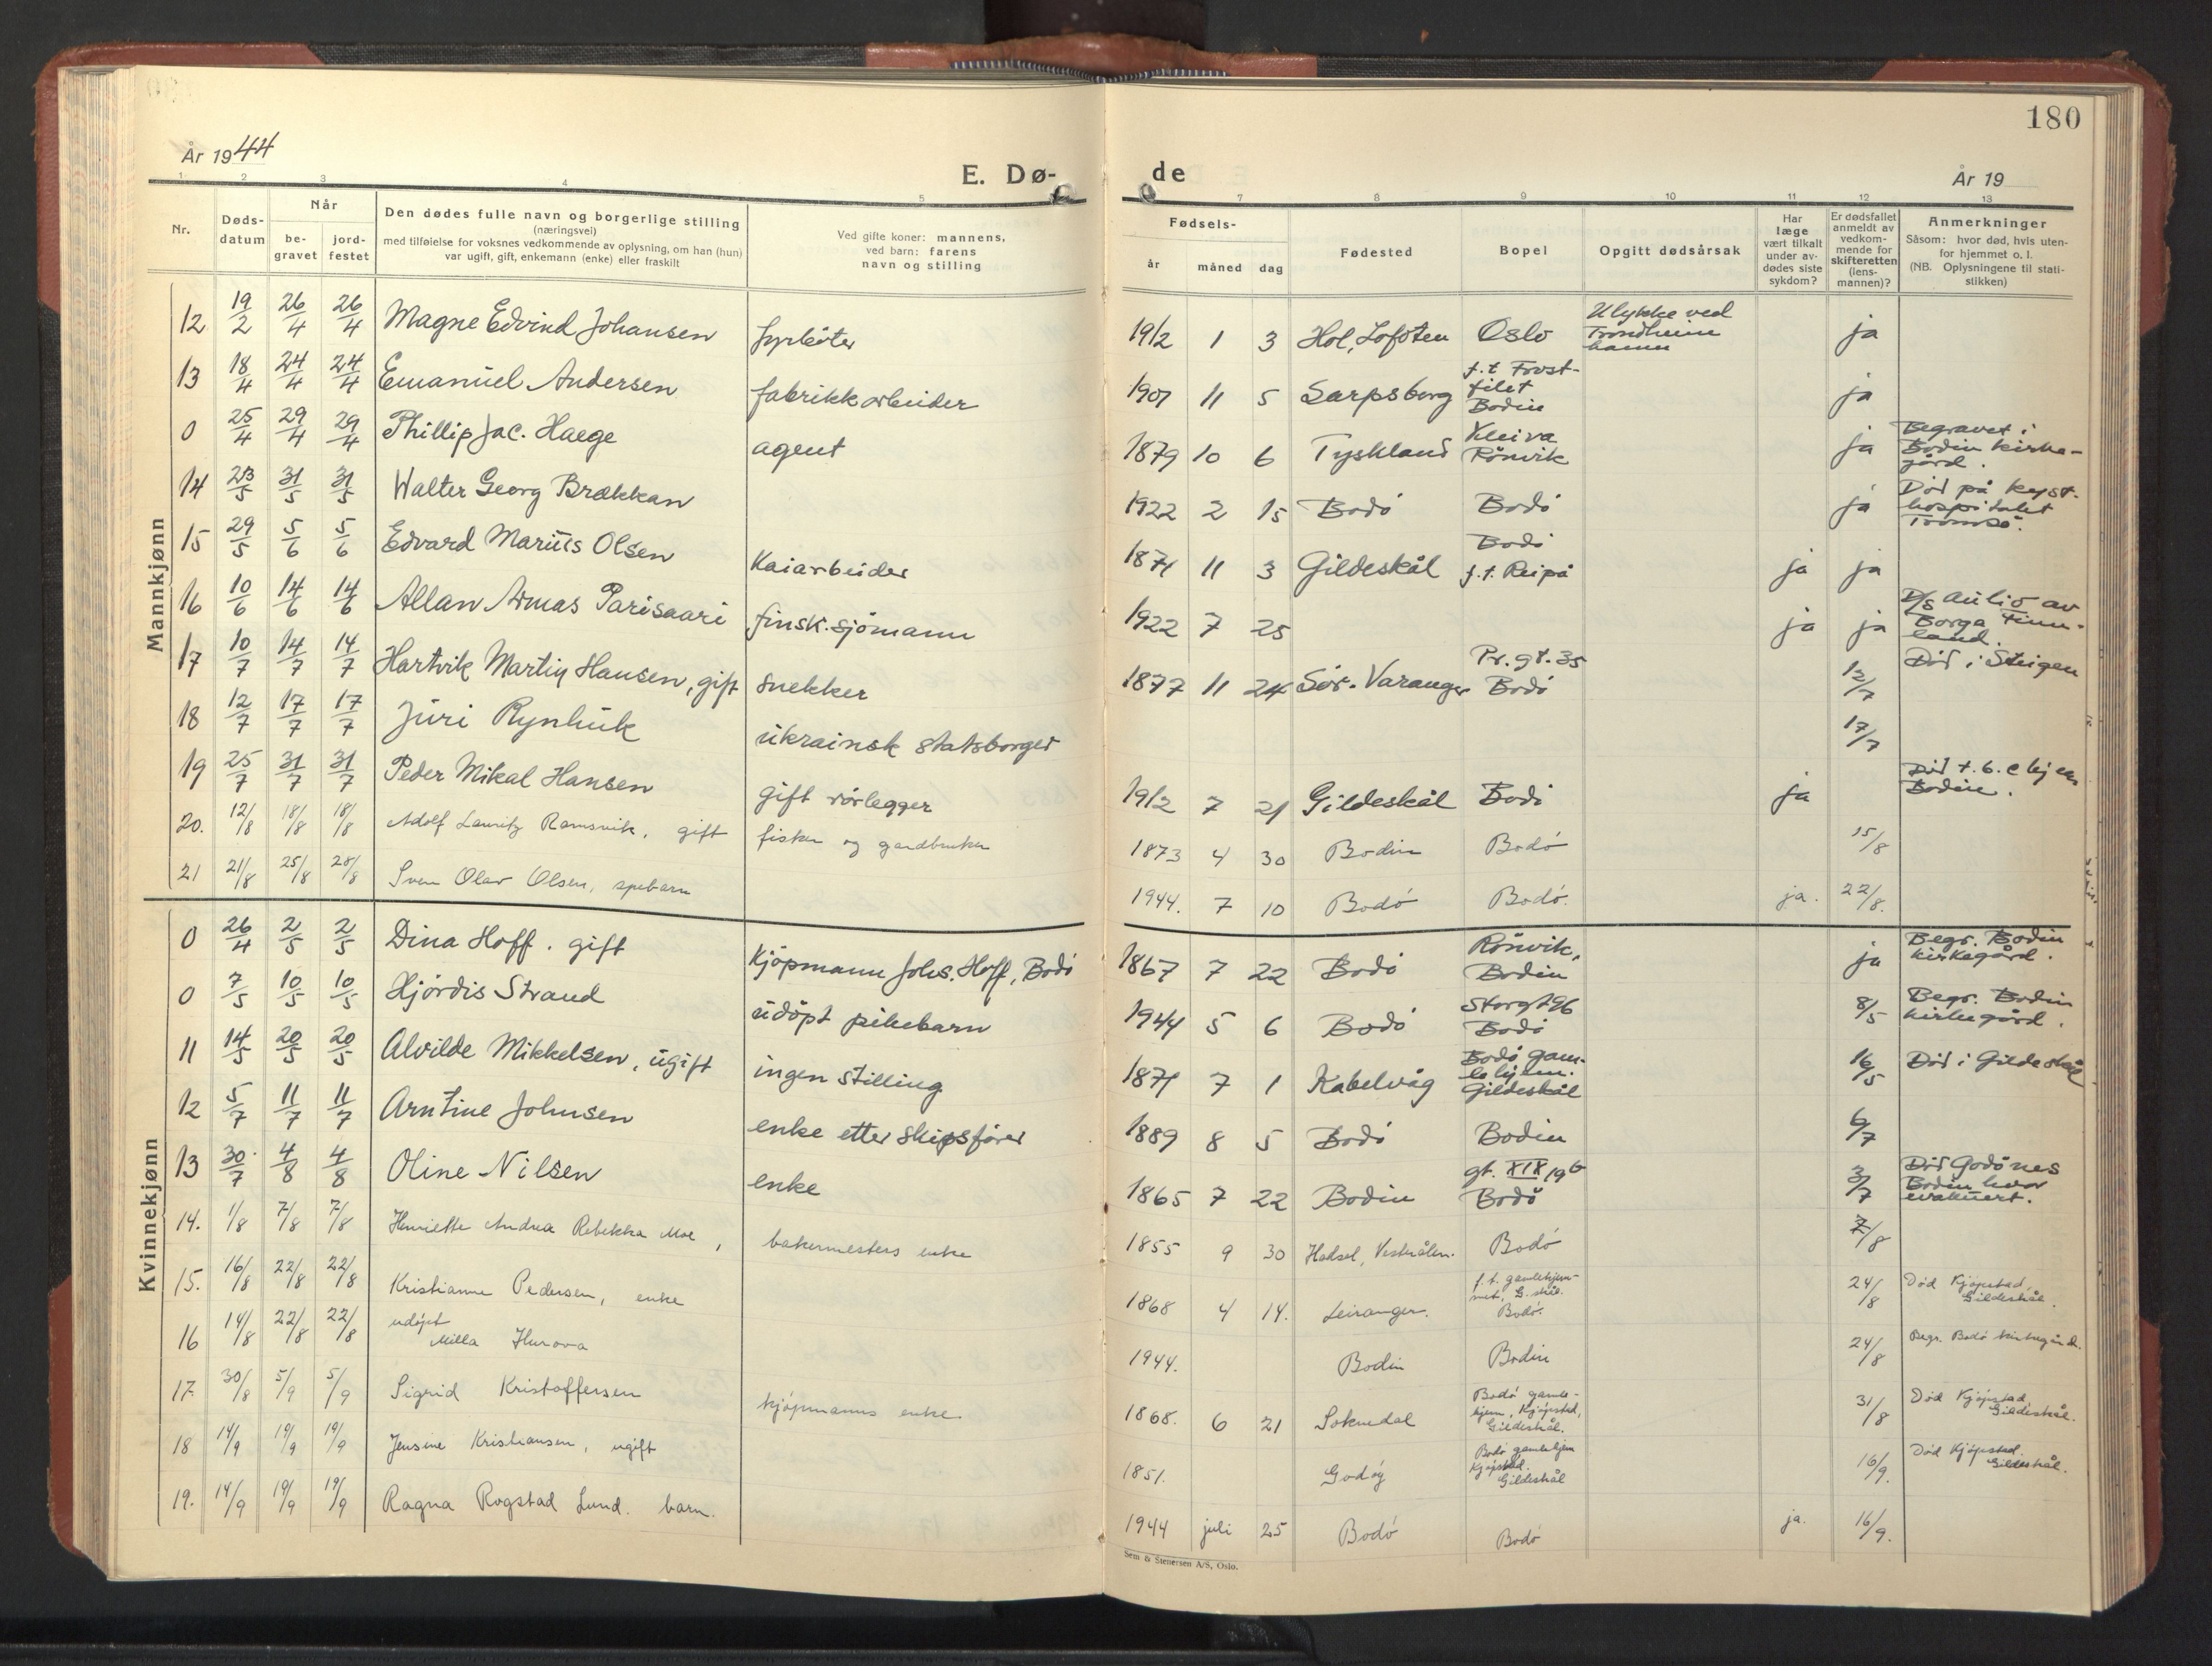 180
År 1944
E. Dø-
de
År 19
1 2 3 4 5 7 8 9 10 11 12 13
Nr.
Dødsdatum
Når
begravet
jordfestet
Den dødes fulle navn og borgerlige stilling
(næringsvei)
med tilføielse for voksnes vedkommende av oplysning, om han (hun)
var ugift, gift, enkemann (enke) eller fraskilt
Ved gifte koner: mannens,
ved barn: farens
navn og stilling
Fødsels-
år måned dag
Fødested
Bopel
Opgitt dødsårsak
Har
læge
vært tilkalt
under av-
dødes siste
sykdom?
Er dødsfallet
anmeldt av
vedkom-
mende for
skifteretten
(lens-
mannen)?
Anmerkninger
Såsom: hvor død, hvis uten-
for hjemmet o. l.
(NB. Oplysningene til stati-
stikken)
Mannkjønn
12 19/2 26/4 26/4 Magne Edvind Johansen fyrbøter 1912 1 3 Hol, Lofoten Oslo Ulykke ved Trondheim havn ja
13 18/4 24/4 24/4 Emanuel Andersen fabrikkarbeider 1907 11 5 Sarpsborg f.t Frost-filet Bodin ja
0 25/4 29/4 29/4 Phillip Jac. Haege agent 1879 10 6 Tyskland Kleiva Rönvik ja Begravet i Bodin kirke-gård.
14 23/5 31/5 31/5 Walter Georg Brækkan 1922 2 15 Bodö Bodö ja Död på kyst-hospitalet Tromsö.
15 29/5 5/6 5/6 Edvard Marius Olsen Kaiarbeider 1871 11 3 Gildeskål Bodö f.t. Reipå ja ja
16 10/6 14/6 14/6 Allan Armas Parisaari finsk. sjömann 1922 7 25 ja ja D/s Aulio av Borga Finn-land.
17 10/7 14/7 14/7 Hartvik Martin Hansen, gift snekker 1877 11 24 Sör-Varanger Pr. gt. 35 Bodö 12/7 Död i Steigen
18 12/7 17/7 17/7 Juri Rynhuk ukrainsk statsborger 17/7
19 25/7 31/7 31/7 Peder Mikal Hansen gift rörlegger 1912 7 21 Gildeskål Bodö ja Död t.b.c hjem Bodin.
20. 12/8 18/8 18/8 Adolf Lauritz Ramsvik, gift fisker og gardbruker 1873 4 30 Bodin Bodö 15/8
21 21/8 25/8 28/8 Sven Olav Olsen, spebarn 1944. 7 10 Bodö Bodö. ja. 22/8.
Kvinnekjønn
0 26/4 2/5 2/5 Dina Hoff. gift Kjöpmann Johs. Hoff, Bodö 1867 7 22 Bodö Rönvik, Bodin ja Begr. Bodin kirkegård.
0 7/5 10/5 10/5 Hjördis Strand udöpt pikebarn 1944 5 6 Bodö Storgt 96 Bodö 8/5 Begr. Bodin kirkegård.
11 14/5 20/5 20/5 Alvilde Mikkelsen, ugift ingen stilling 1871 7 1 Kabelvåg Bodö gam-lehjem. Gildeskål 16/5 Död i Gildeskål
12 5/7 11/7 11/7 Arntine Johnsen enke etter skipsförer 1889 8 5 Bodö Bodin 6/7
13 30/7 4/8 4/8 Oline Nilsen enke 1865 7 22 Bodin gt. XIX 19b Bodö 3/7 Död Godönes Bodin hvor evakuert.
14. 1/8 7/8 7/8 Henriette Andrea Rebekka Moe, bakermesters enke 1855 9 30 Hadsel, Vesterålen. Bodö 7/8
15. 16/8 22/8 22/8 Kristianne Pedersen, enke 1868 4 14. Leiranger. f.t. gamlehjem-met, G.skål. Bodö. 24/8 Död Kjöpstad, Gildeskål.
16 14/8 22/8 22/8 udöpt Milla Hurova 1944. Bodin Bodin 24/8 Begr. Bodö kirkegård.
17. 30/8 5/9 5/9 Sigrid Kristoffersen kjöpmanns enke 1868. 6 21 Soknedal Bodö gamle-hjem, Kjöpstad, Gildeskål. 31/8 Död Kjöpstad, Gildeskål.
18 14/9 19/9 19/9 Jensine Kristiansen, ugift 1851. Godöy Bodö gamlehjem Kjöpstad. Gildeskål 16/9. Död Kjöpstad. Gildeskål.
19. 14/9 19/9 19/9 Ragna Rogstad Lund. barn. 1944 juli 25 Bodö Bodö ja. 16/9.
Sem & Stenersen A/S, Oslo.